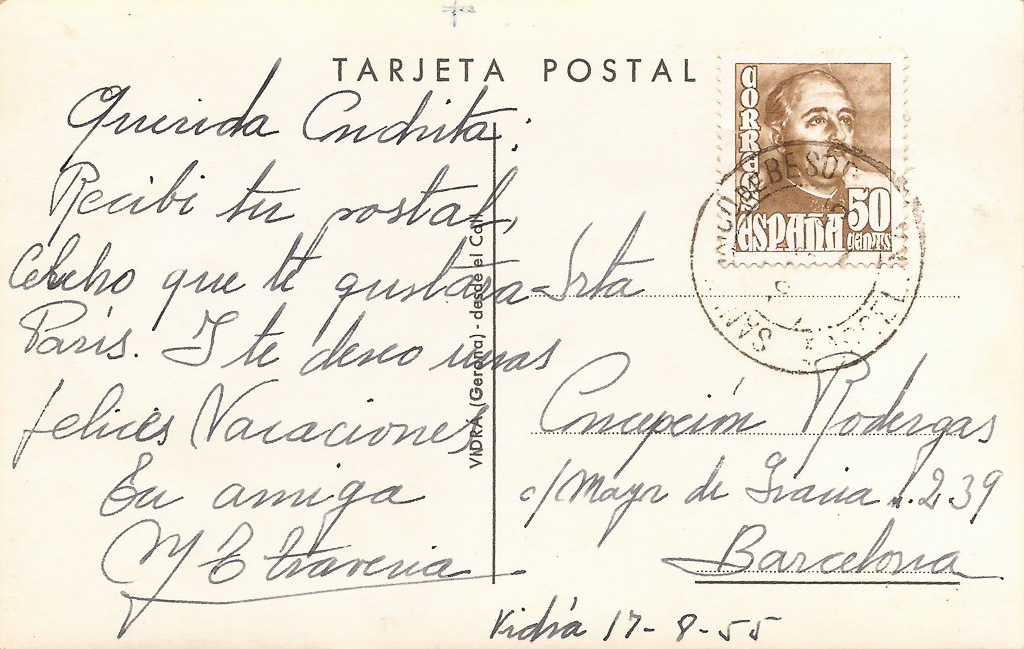 TARJETA POSTAL
Querida Conchita:
Recibi tu postal,
Celebro que te gustara
París. I te deseo unas
felices Vacaciones
Tu amiga
M T Traveria
VIDRÁ (Gerona) - desde el Coll
CORREOS
ESPAÑA
50
Srta
Concepción Rodergas
c/ Mayor de Gracia n. 239
Barcelona
Vidrá 17-8-55